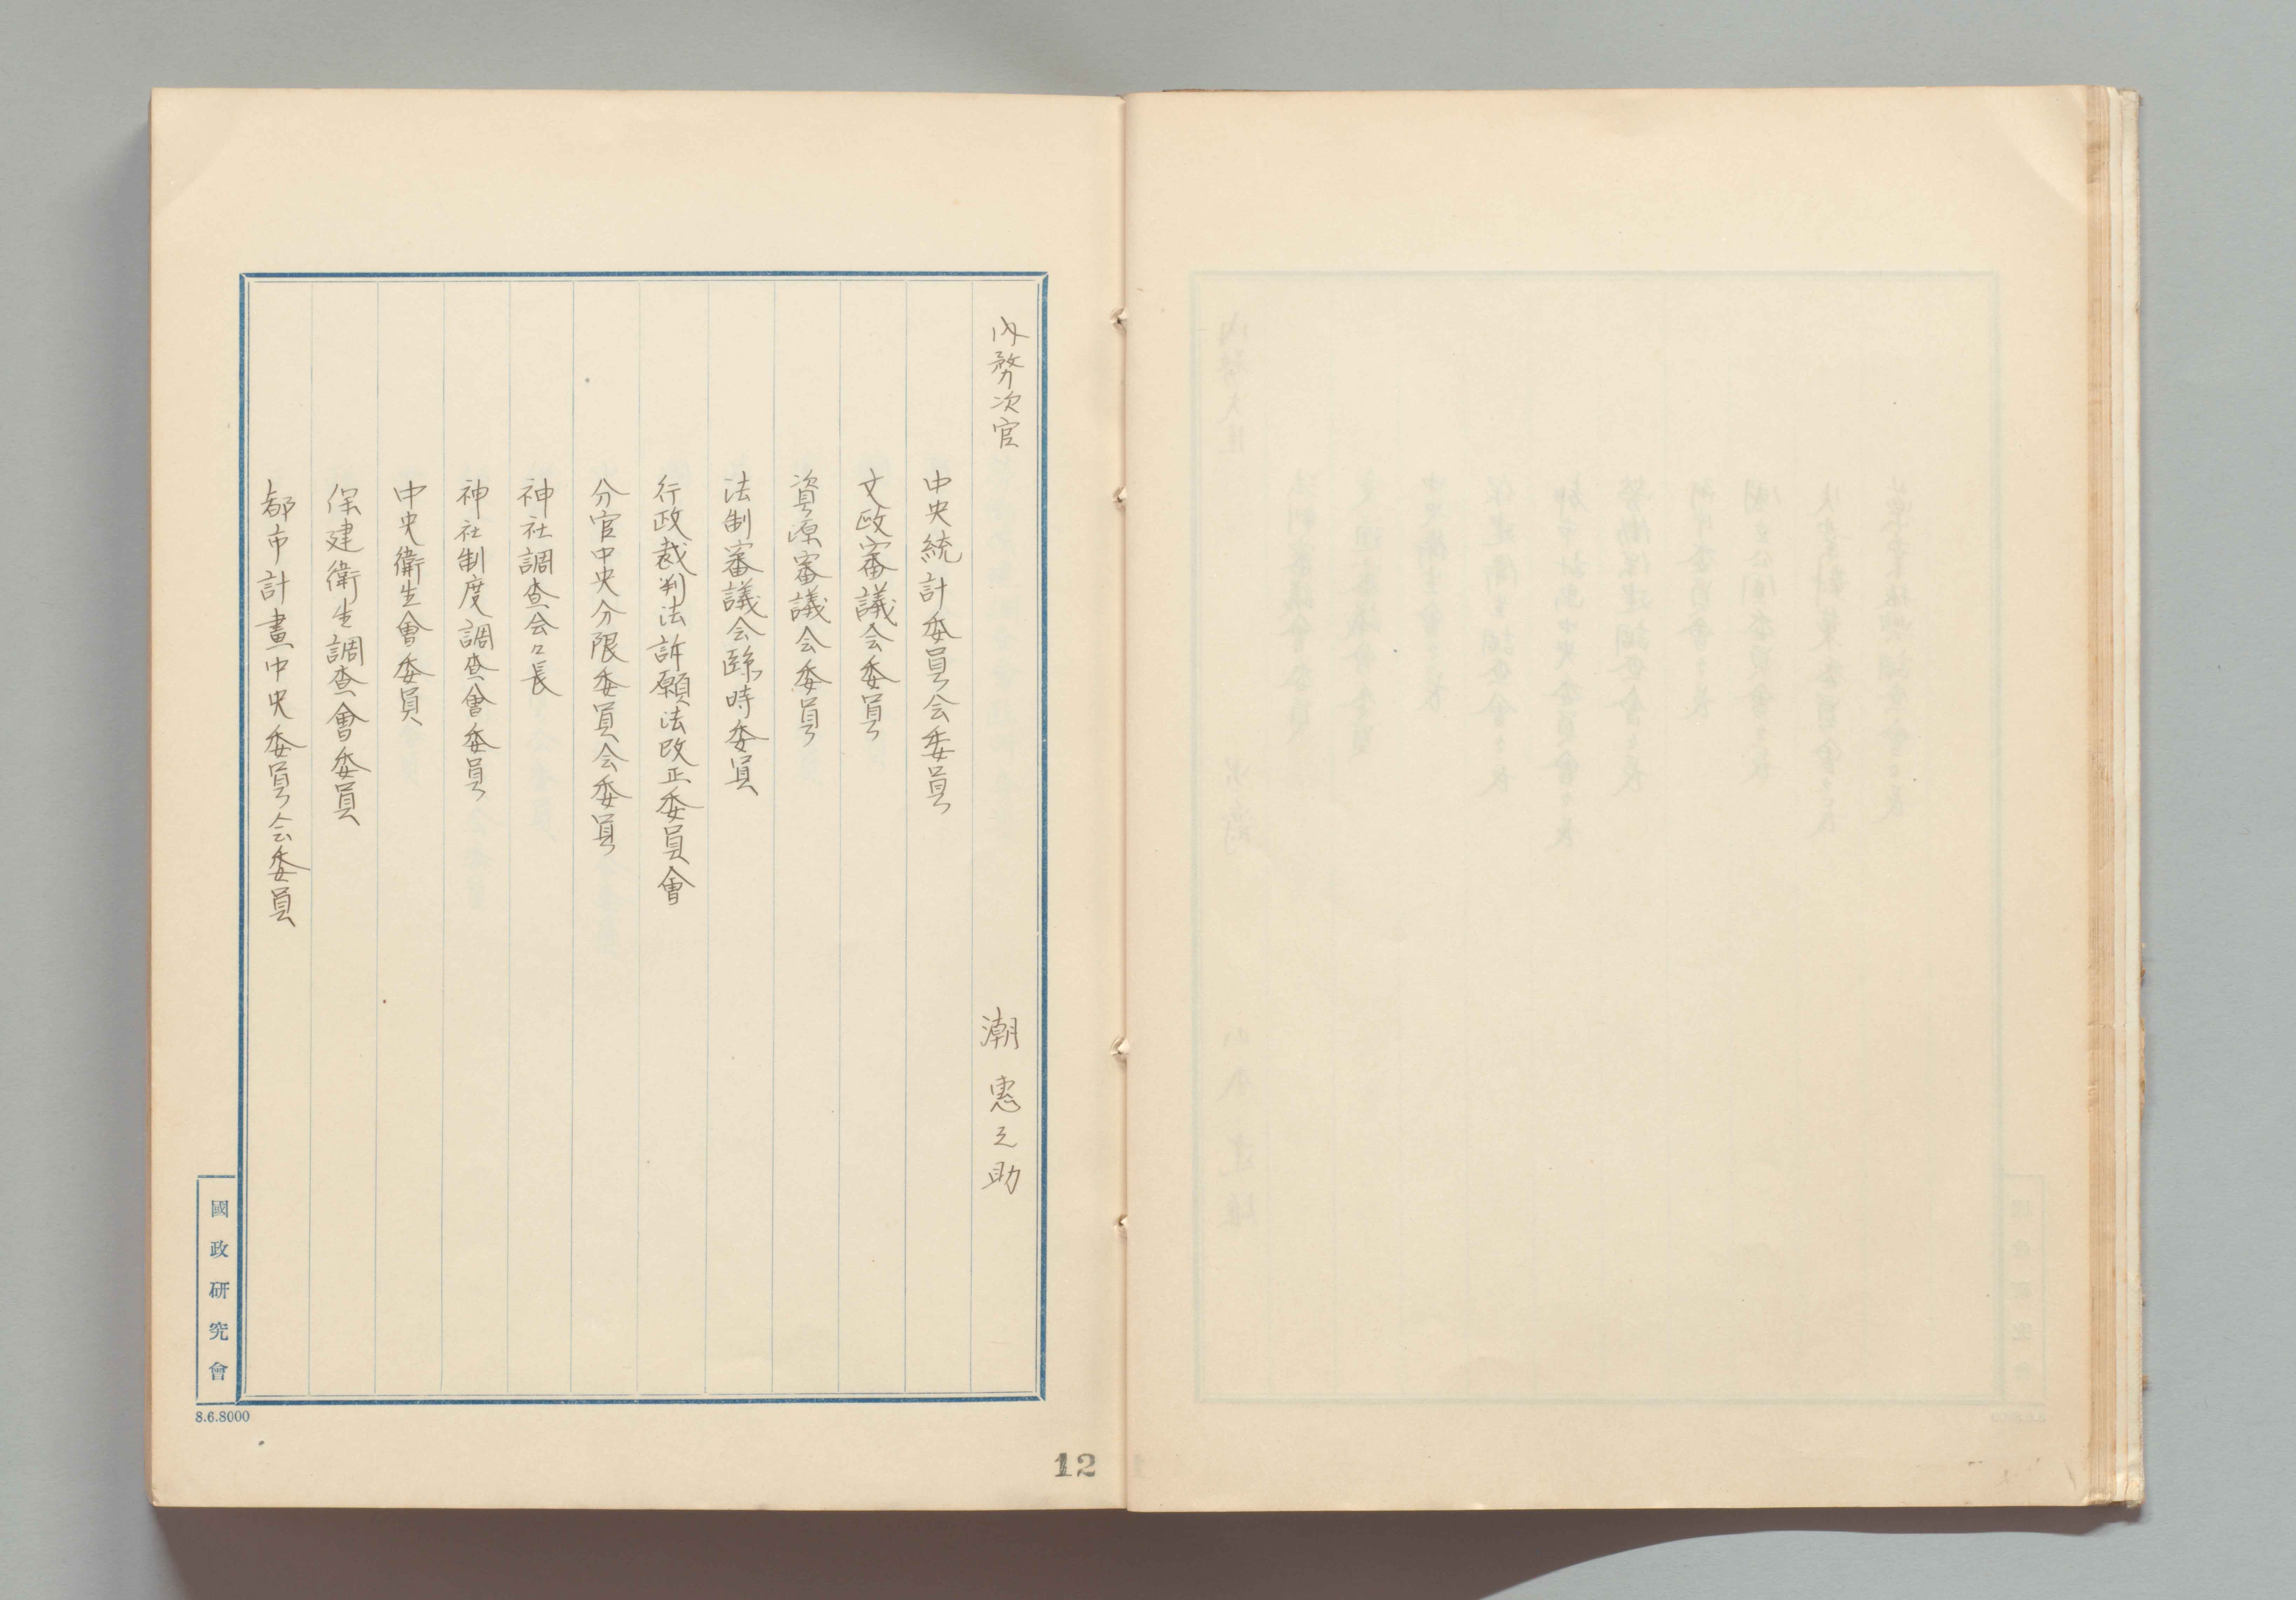 内務次官　潮惠之助
中央統計委員会委員
文政審議会委員
資源審議会委員
法制審議会臨時委員
行政裁判法訴願法改正委員會
分官中央分限委員会委員
神社調査会々長
神社制度調査會委員
中央衛生會委員
保健衛生調査會委員
都市計畫中央委員会委員
國政研究會
8.6.8000
12